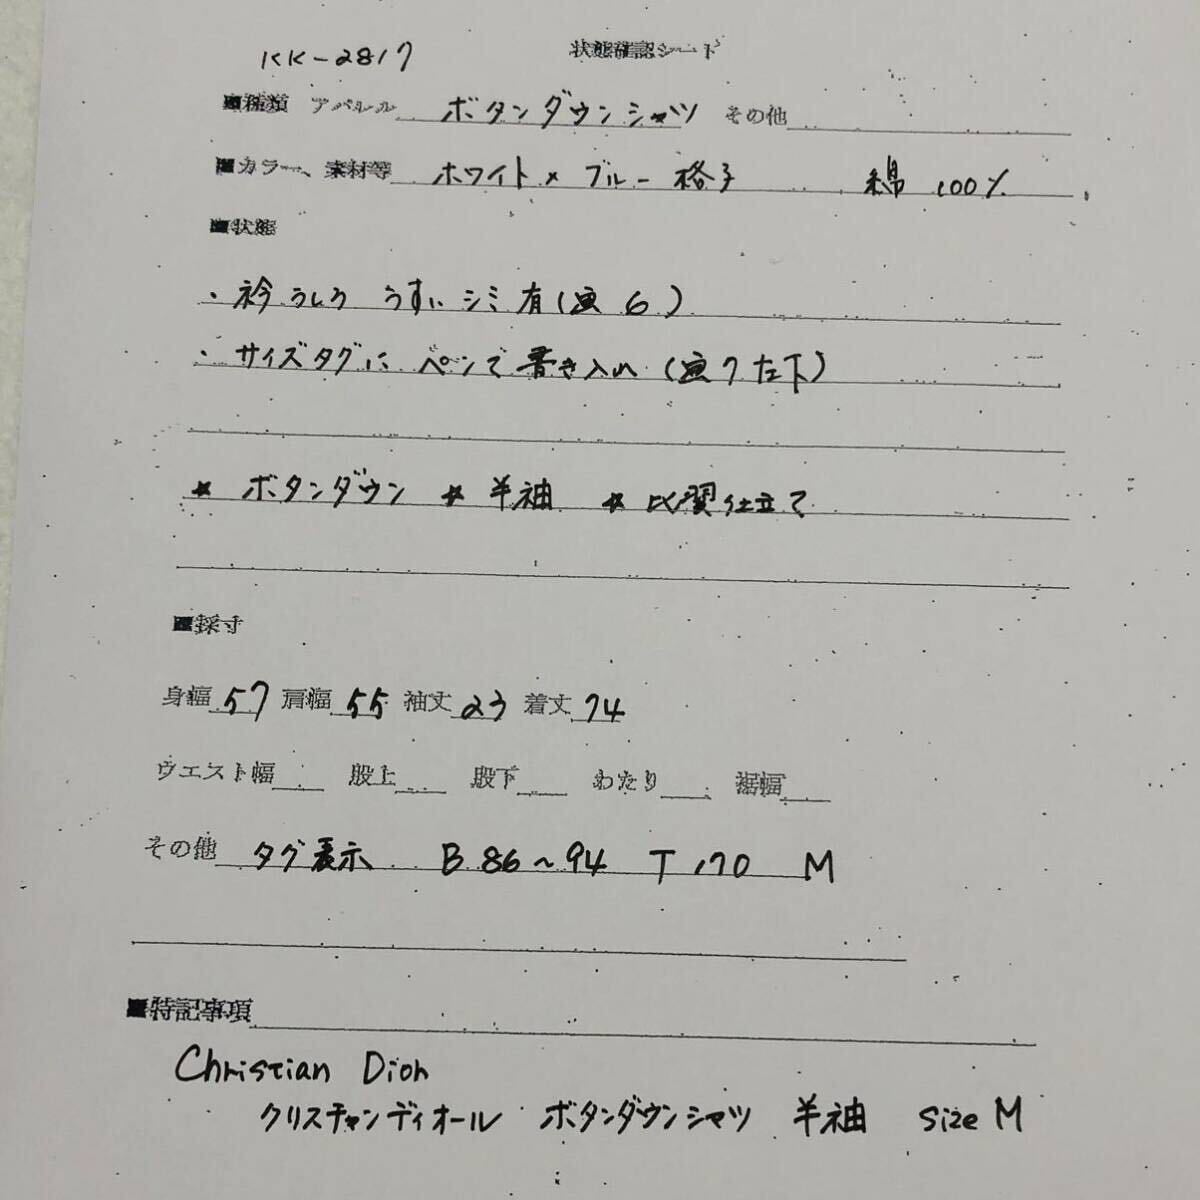 KK-2817 状態確認シート
■種類 アパレル ボタンダウンシャツ その他
■カラー、素材等 ホワイト×ブルー格子 綿 100%
■状態
・衿うしろ うすいシミ有(画6)
・サイズタグに ペンで書き入れ(画7左下)
★ ボタンダウン ★ 半袖 ★ 比翼仕立て
■採寸
身幅 57 肩幅 55 袖丈 23 着丈 74
ウエスト幅 股上 股下 わたり 裾幅
その他 タグ表示 B 86~94 T 170 M
■特記事項
Christian Dior
クリスチャンディオール ボタンダウンシャツ 半袖 size M